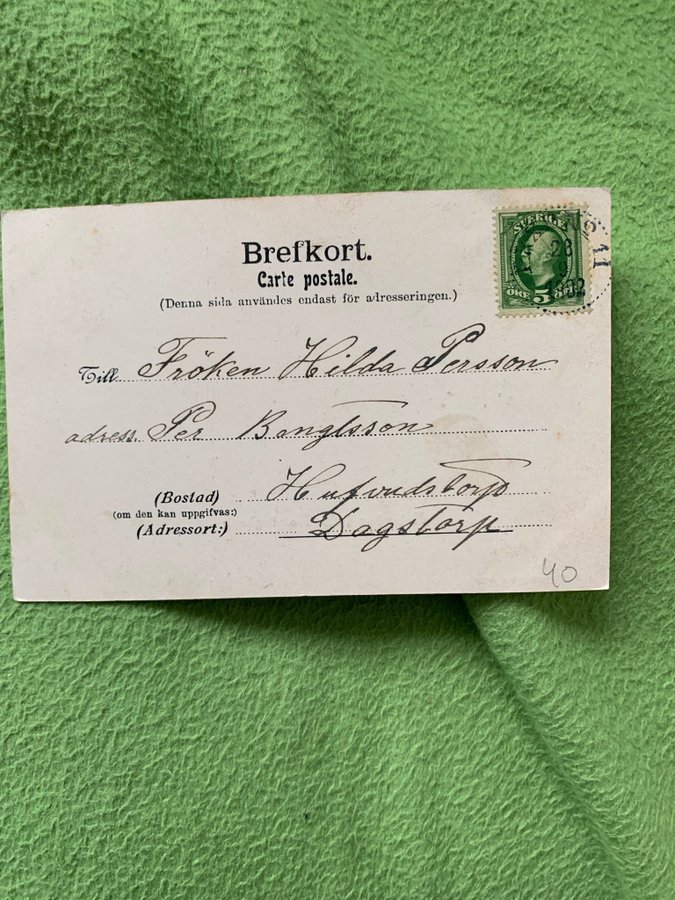 Brefkort.
Carte postale.
(Denna sida användes endast för adresseringen.)
SVERIGE
23
1902
ÖRE 5
Till Fröken Hilda Persson
adress. Per Bengtsson
(Bostad) Hufvudstorp
(om den kan uppgifvas:)
(Adressort:) Dagstorp
40